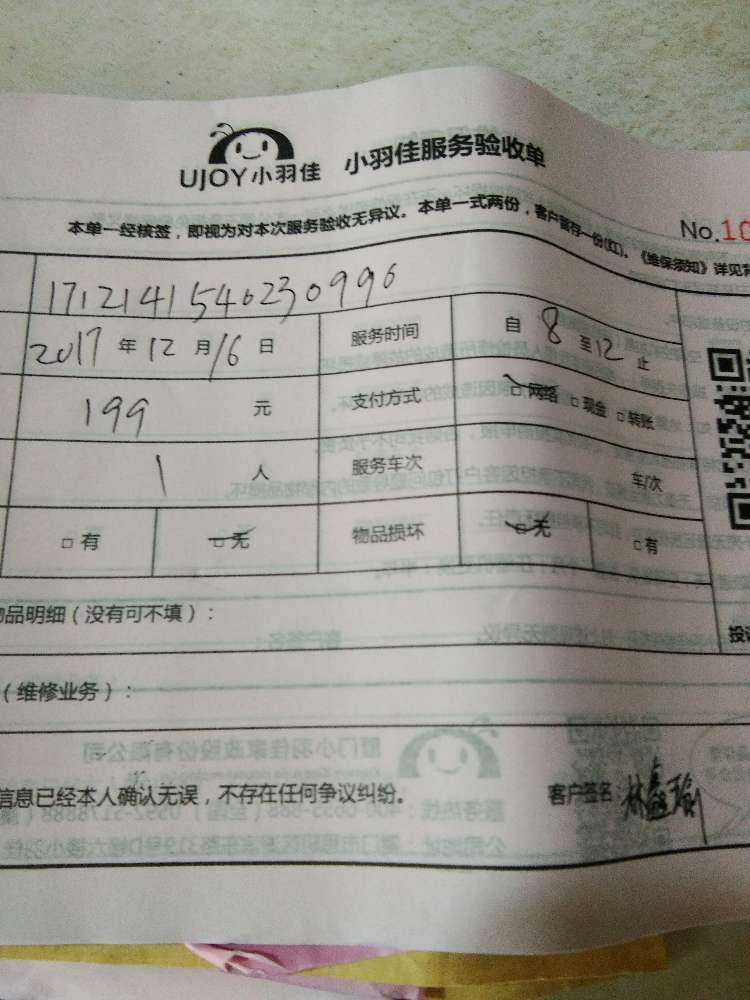 UJOY小羽佳 小羽佳服务验收单
本单一经核签，即视为对本次服务验收无异议。本单一式两份，客户留存一份(红)。《维保须知》详见背
No.10
1712141540230996
2017年12月16日 服务时间 自8至12止
199元 支付方式 □网络 □现金 □转账
1人 服务车次 车/次
□有 □无 物品损坏 □无 □有
品明细（没有可不填）：
投诉
（维修业务）：
信息已经本人确认无误，不存在任何争议纠纷。
客户签名 林鑫瑜